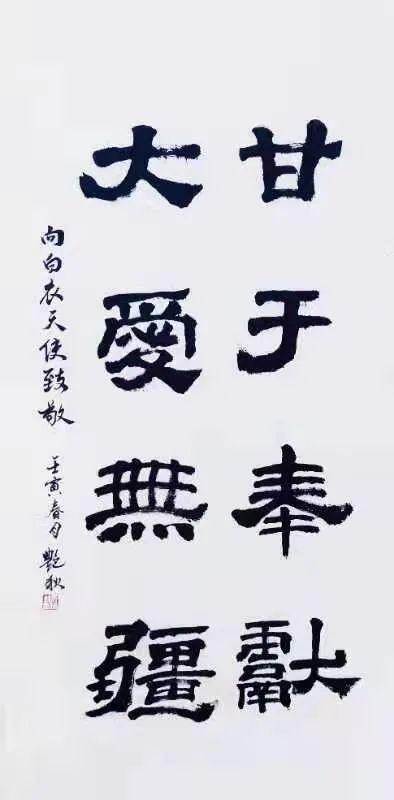 甘于奉獻
大愛無疆
向白衣天使致敬
壬寅春月艷秋